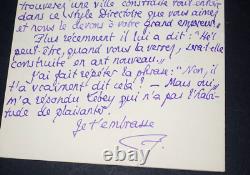 trouverez une ville construite tout entier
dans ce style Directoire que vous aimez
et nous le devons à votre grand empereur."
Plus récemment il lui a dit : "Hé!
peut-être, quand vous la verrez, sera-t-elle
construite en art nouveau."
J'ai fait répéter la phrase : "Non, il
t'a vraiment dit cela? — Mais oui,
m'a répondu Lebey qui n'a pas l'habi-
tude de plaisanter.
Je t'embrasse